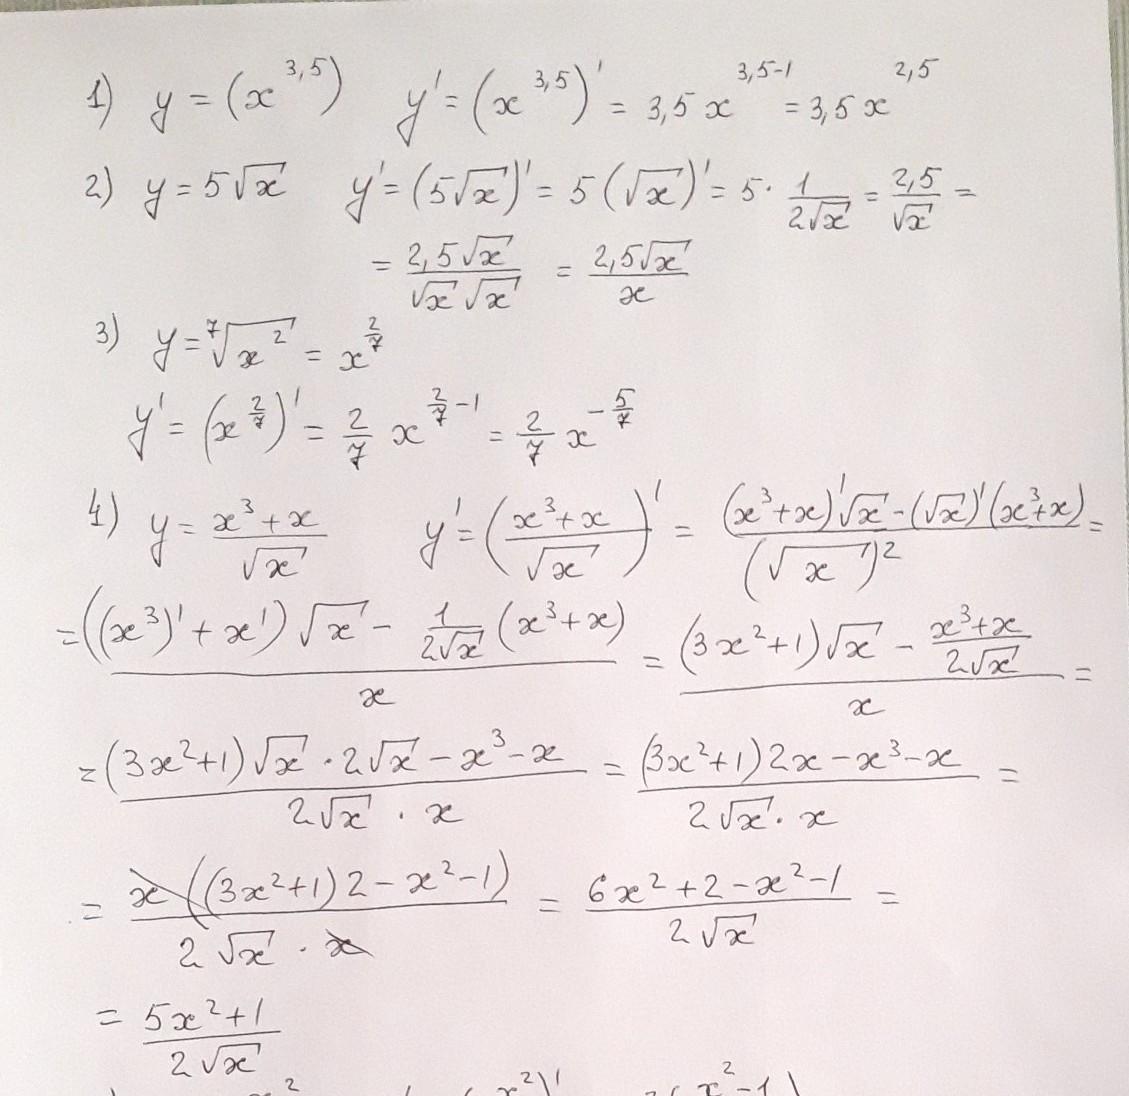 1) y = (x^{3,5}) y' = (x^{3,5})' = 3,5 x^{3,5-1} = 3,5 x^{2,5}
2) y = 5√x y' = (5√x)' = 5(√x)' = 5 · 1/(2√x) = 2,5/√x =
= 2,5√x/(√x √x) = 2,5√x/x
3) y = ⁷√(x²) = x^{2/7}
y' = (x^{2/7})' = 2/7 x^{2/7 - 1} = 2/7 x^{-5/7}
4) y = (x³+x)/√x y' = ((x³+x)/√x)' = ((x³+x)'√x - (√x)'(x³+x))/(√x)² =
= (((x³)' + x')√x - 1/(2√x) (x³+x))/x = ((3x²+1)√x - (x³+x)/(2√x))/x =
= ((3x²+1)√x · 2√x - x³ - x)/(2√x · x) = ((3x²+1)2x - x³ - x)/(2√x · x) =
= x((3x²+1)2 - x² - 1)/(2√x · x) = (6x² + 2 - x² - 1)/(2√x) =
= (5x²+1)/(2√x)